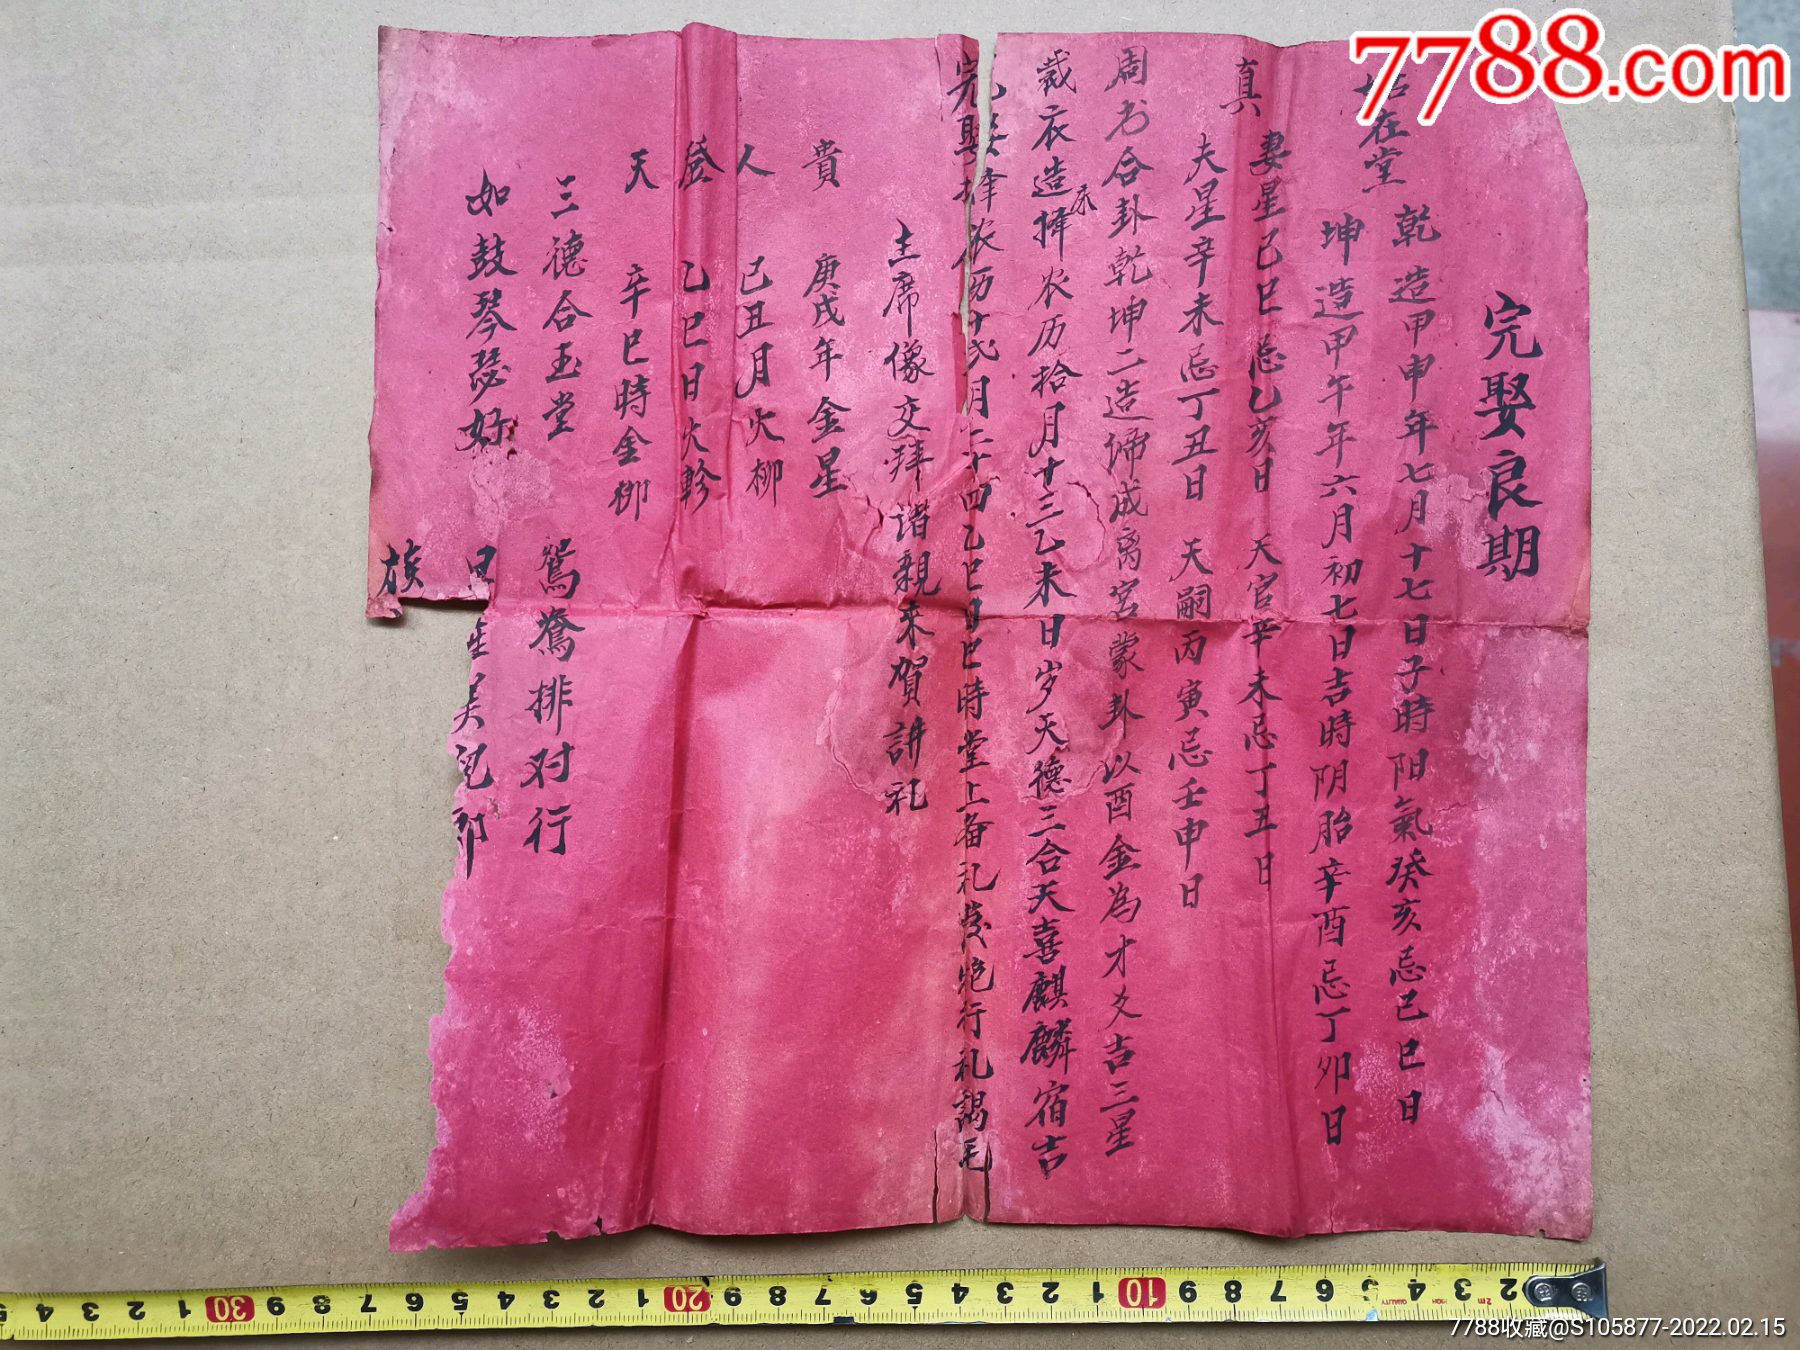 7788.com
完娶良期
在堂
乾造甲申年七月十七日子時阳氣癸亥忌己巳日
坤造甲午年六月初七日吉時阴胎辛酉忌丁卯日
真
妻星己巳忌乙亥日 天官辛未忌丁丑日
夫星辛未忌丁丑日 天嗣丙寅忌壬申日
周书合卦乾坤二造 成离宫蒙卦以酉金為才爻吉三星
裁衣造床择农历拾月十三乙未日岁天德三合天喜麒麟宿吉
完娶择农历十弍月二十四乙巳日巳時堂上备礼 行礼謁
主席像交拜 諸親来賀讲礼
貴 庚戌年金星
人 己丑月火柳
登 乙巳日火軫
天 辛巳時金柳
三德合玉堂 鴛鴦排对行
如鼓琴瑟好
族
7788收藏@S105877-2022.02.15